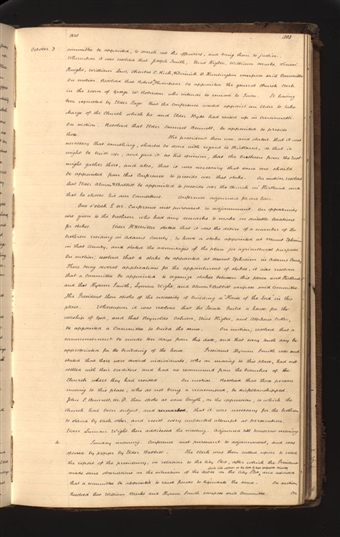 October 3
committee be appointed, to search out the offenders, and bring them to justice.
Whereupon it was resolved that Joseph Smith, Elias Higbee, William Marks, Vinson
Knight, William Law, Charles C. Rich, & Dimick B. Huntington compose said Committee
On motion, Resolved that Robert B. Thompson be appointed the general Church Clerk
in the room of George W. Robinson who intends to remove to Iowa.
charge of the Church which he and Elder Hyde had raised up in Cincinnatti
On motion, Resolved that Elder Samuel Bennett, be appointed to preside
The president then rose, and stated that it was
necessary that something, should be done with regard to Kirtland, so that it
might be built up, and gave it as his opinion, that the brethren from the east
might gather there, and also, that it was necessary that some one should
be appointed from this Conference to preside over that stake. On motion, resolved
that Elder Almon Babbitt be appointed to preside over the church in Kirtland and
that he choose his own Counsellors. Conference adjourned for one hour.
One o'clock P.M. Conference met pursuant to adjournment. An opportunity
was given to the brethren who had any remarks to make on suitable locations
for stakes
brethren residing in Adams County, to have a stake appointed at Mount Ephraim
in that County, and stated the advantages of the place for agricultural purposes.
On motion, resolved that a stake be appointed at Mount Ephraim in Adams County
There being several applications for the appointment of stakes, it was resolved
that a Committee be appointed to organize stakes between this place and Kirtland
and that Hyrum Smith, Lyman Wight, and Almon Babbitt compose said Committee
The President then spoke of the necessity of building a House of the Lord in this
place. Whereupon it was resolved that the Saints build a house for the
worship of God, and that Reynolds Cahoon, Elias Higbee, and Alpheus Cutler,
be appointed a Committee to build the same. On motion, resolved that a
commencement be made ten days from this date, and that every tenth day be
appropriated for the building of the house. President Hyrum Smith arose and
stated that there were several individuals, who on moving to this place, had not
settled with their creditors and had no recommend from the branches of the
Church where they had resided. On motion Resolved that those persons
moving to this place, who do not bring a recommend, be disfellowshipped.
John C. Bennett, M.D. then spoke at some length, on the oppression, to which the
Church had been subject, and remarked, that it was necessary for the brethren
to stand by each other, and resist every unlawful attempt at persecution.
Elder Lyman Wight then addressed the meeting. Adjourned till tomorrow morning
4. Sunday morning. Conference met pursuant to adjournment, and was
opened by prayer by Elder Babbitt. The clerk was then called upon to read
the report of the presidency, in relation to the city Plot, after which the President
made some observations on the situation of the debts on the city Plot, and advised
that a committee be appointed to raise funds to liquidate the same. On motion
Resolved that William Marks and Hyrum Smith compose said Committee. On